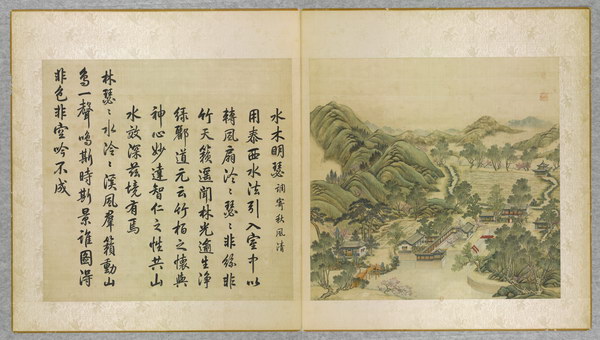 水木明瑟 調寄秋風清
用泰西水法引入室中以
轉風扇泠〻瑟〻非絲非
竹天籟遥聞林光逾生淨
綠酈道元云竹柏之懷與
神心妙達智仁之性共山
水效深茲境有焉
林瑟〻水泠〻溪風羣籟動山
鳥一聲鳴斯時斯景誰圖得
非色非空吟不成